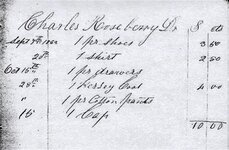 Charles Roseberry Dr $ cts
Sept 7th 1 pr shoes 3 50
28th 1 shirt 2 50
Oct 15th 1 pr drawers
28th 1 Kersey Coat 4 00
" 1 pr Cotton pants
15 1 Cap
10 00